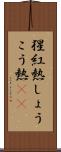 猩紅熱しょう
こう熱((